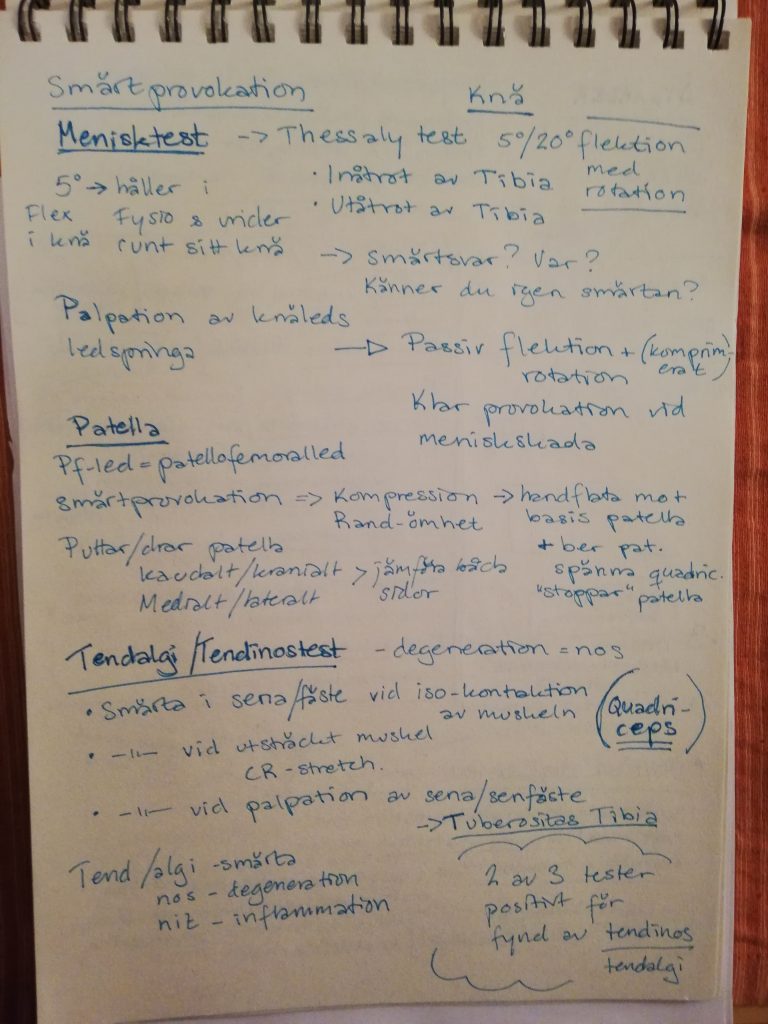 Smärtprovokation
Knä
Menisktest -> Thessaly test 5°/20° flektion
med
rotation
5° → håller i
Flex Fysio & vrider
i knä runt sitt knä
• Inåtrot av Tibia
• Utåtrot av Tibia
-> Smärtsvar? Var?
Känner du igen smärtan?
Palpation av knäleds
ledspringa
→ Passiv flektion + (komprim-
erat)
rotation
Klar provokation vid
meniskskada
Patella
Pf-led = patellofemoralled
smärtprovokation => Kompression -> handflata mot
Rand-ömhet basis patella
+ ber pat.
spänna quadric.
"stoppar" patella
Puttar/drar patella
kaudalt/kranialt > jämföra båda
Medialt/lateralt sidor
Tendalgi/Tendinostest - degeneration = nos
• Smärta i sena/fäste vid iso-kontaktion
av muskeln
(Quadri-
ceps)
• -"- vid utsträckt muskel
CR-stretch.
• -"- vid palpation av sena/senfäste
-> Tuberositas Tibia
Tend/algi - smärta
nos - degeneration
nit - inflammation
2 av 3 tester
positivt för
fynd av tendinos
tendalgi